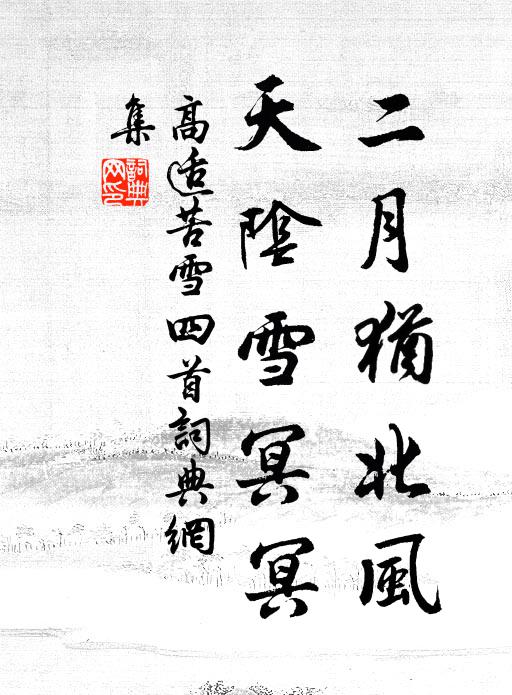 二月猶北風
天陰雪冥冥
高适苦雪四首詞典網
集
詞典
网印